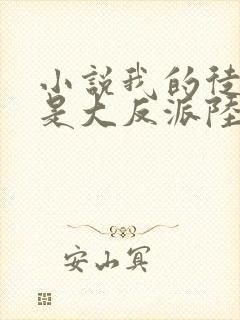 小說我的徒
是大反派陸
安山冥